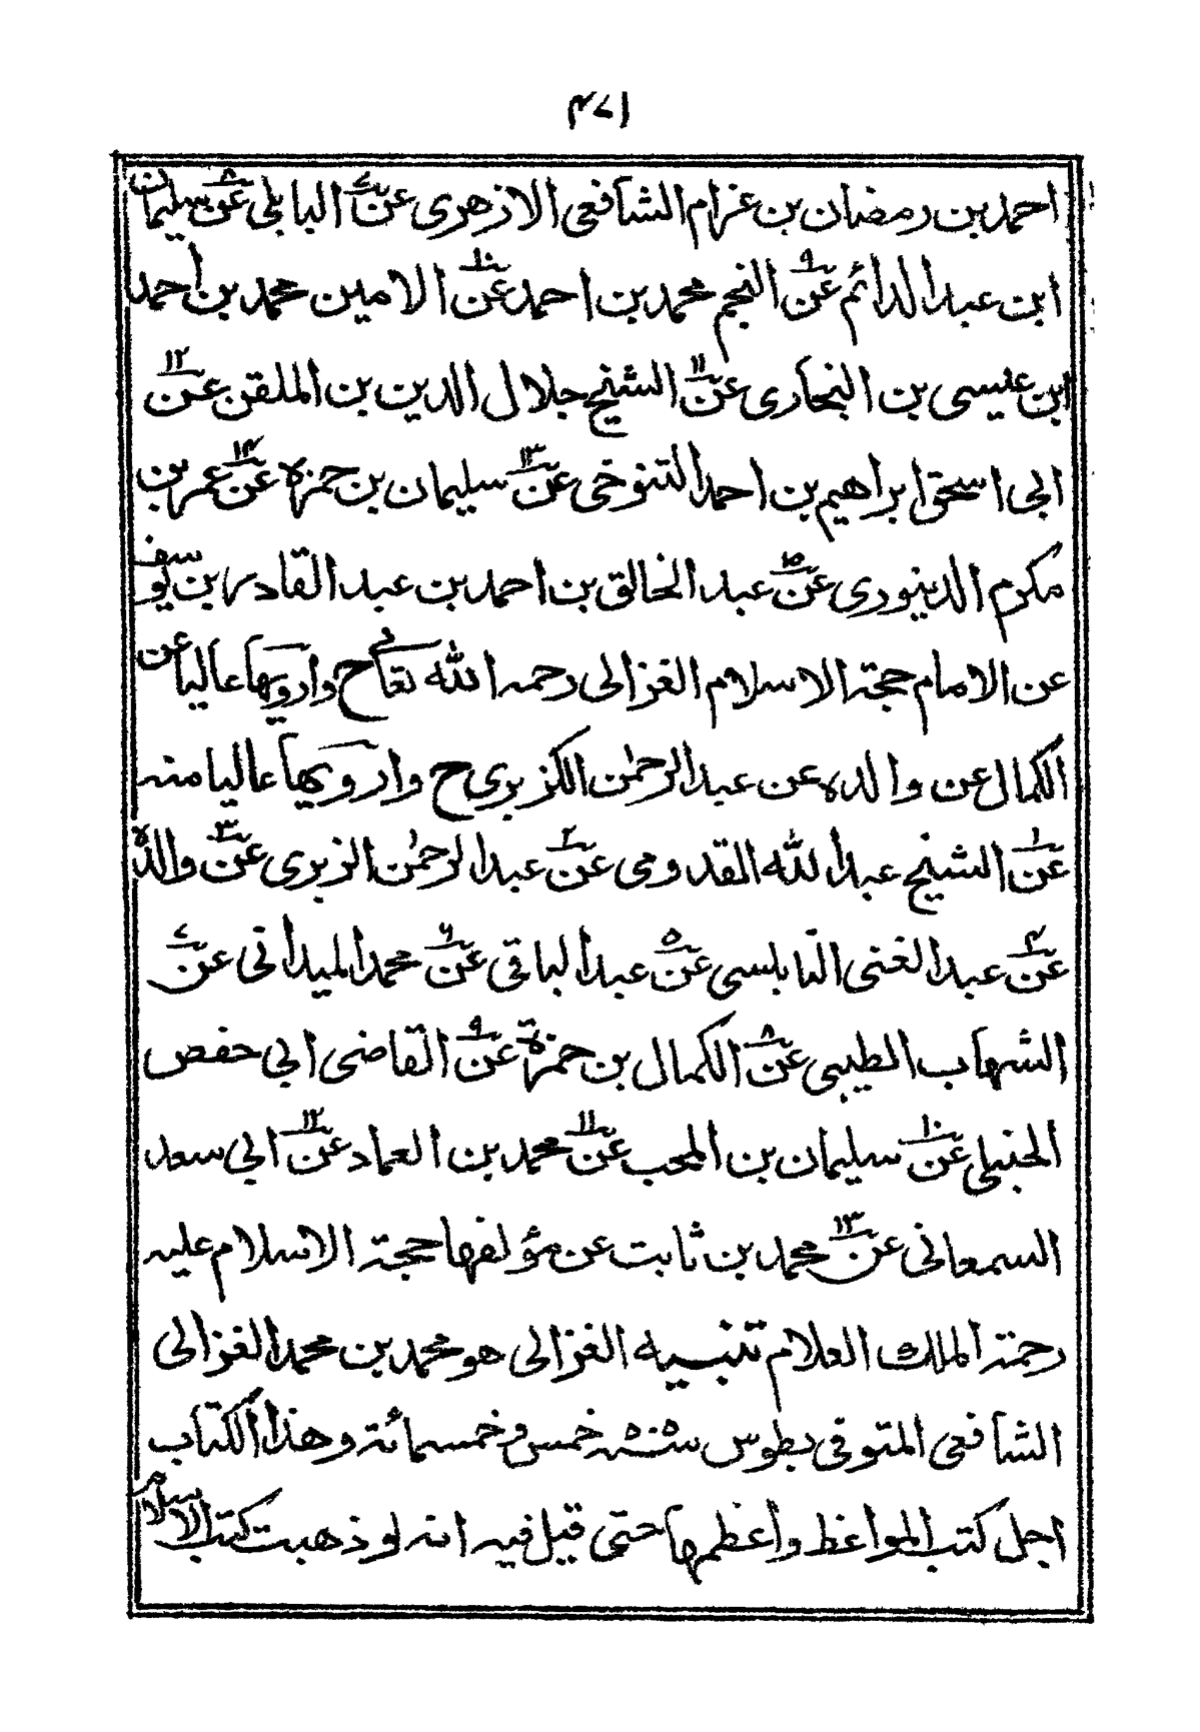 ٤٧١
احمد بن رمضان بن عزام الشافعى الازهرى عن٧ البابلى عن٨ سليمان
ابن عبد الدائم عن٩ النجم محمد بن احمد عن١٠ الامين محمد بن احمد
ابن عيسى بن النجارى عن١١ الشيخ جلال الدين بن الملقن عن١٢
ابى اسحق ابراهيم بن احمد التنوخى عن١٣ سليمان بن حمزة عن١٤ عمر بن
مكرم الدينورى عن١٥ عبد الخالق بن احمد بن عبد القادر بن يوسف
عن الامام حجة الاسلام الغزالى رحمه الله تعالى ح وارويها عاليا عن
الكمال عن والده عن عبد الرحمٰن الكزبرى ح وارويها عاليا منه
عن١ الشيخ عبد الله القدومى عن٢ عبد الرحمٰن الزبرى عن٣ والده
عن٤ عبد الغنى النابلسى عن٥ عبد الباقى عن٦ محمد الميدانى عن٧
الشهاب الطيبى عن٨ الكمال بن حمزة عن٩ القاضى ابى حفص
الحنبلى عن١٠ سليمان بن المحب عن١١ محمد بن العماد عن١٢ ابى سعد
السمعانى عن١٣ محمد بن ثابت عن مؤلفها حجة الاسلام عليه
رحمة الملك العلام تنبيه الغزالى هو محمد بن محمد الغزالى
الشافعى المتوفى بطوس سنة خمس وخمسمائة وهذا الكتاب
اجل كتب المواعظ واعظمها حتى قيل فيه انه لو ذهبت كتب الاسلام